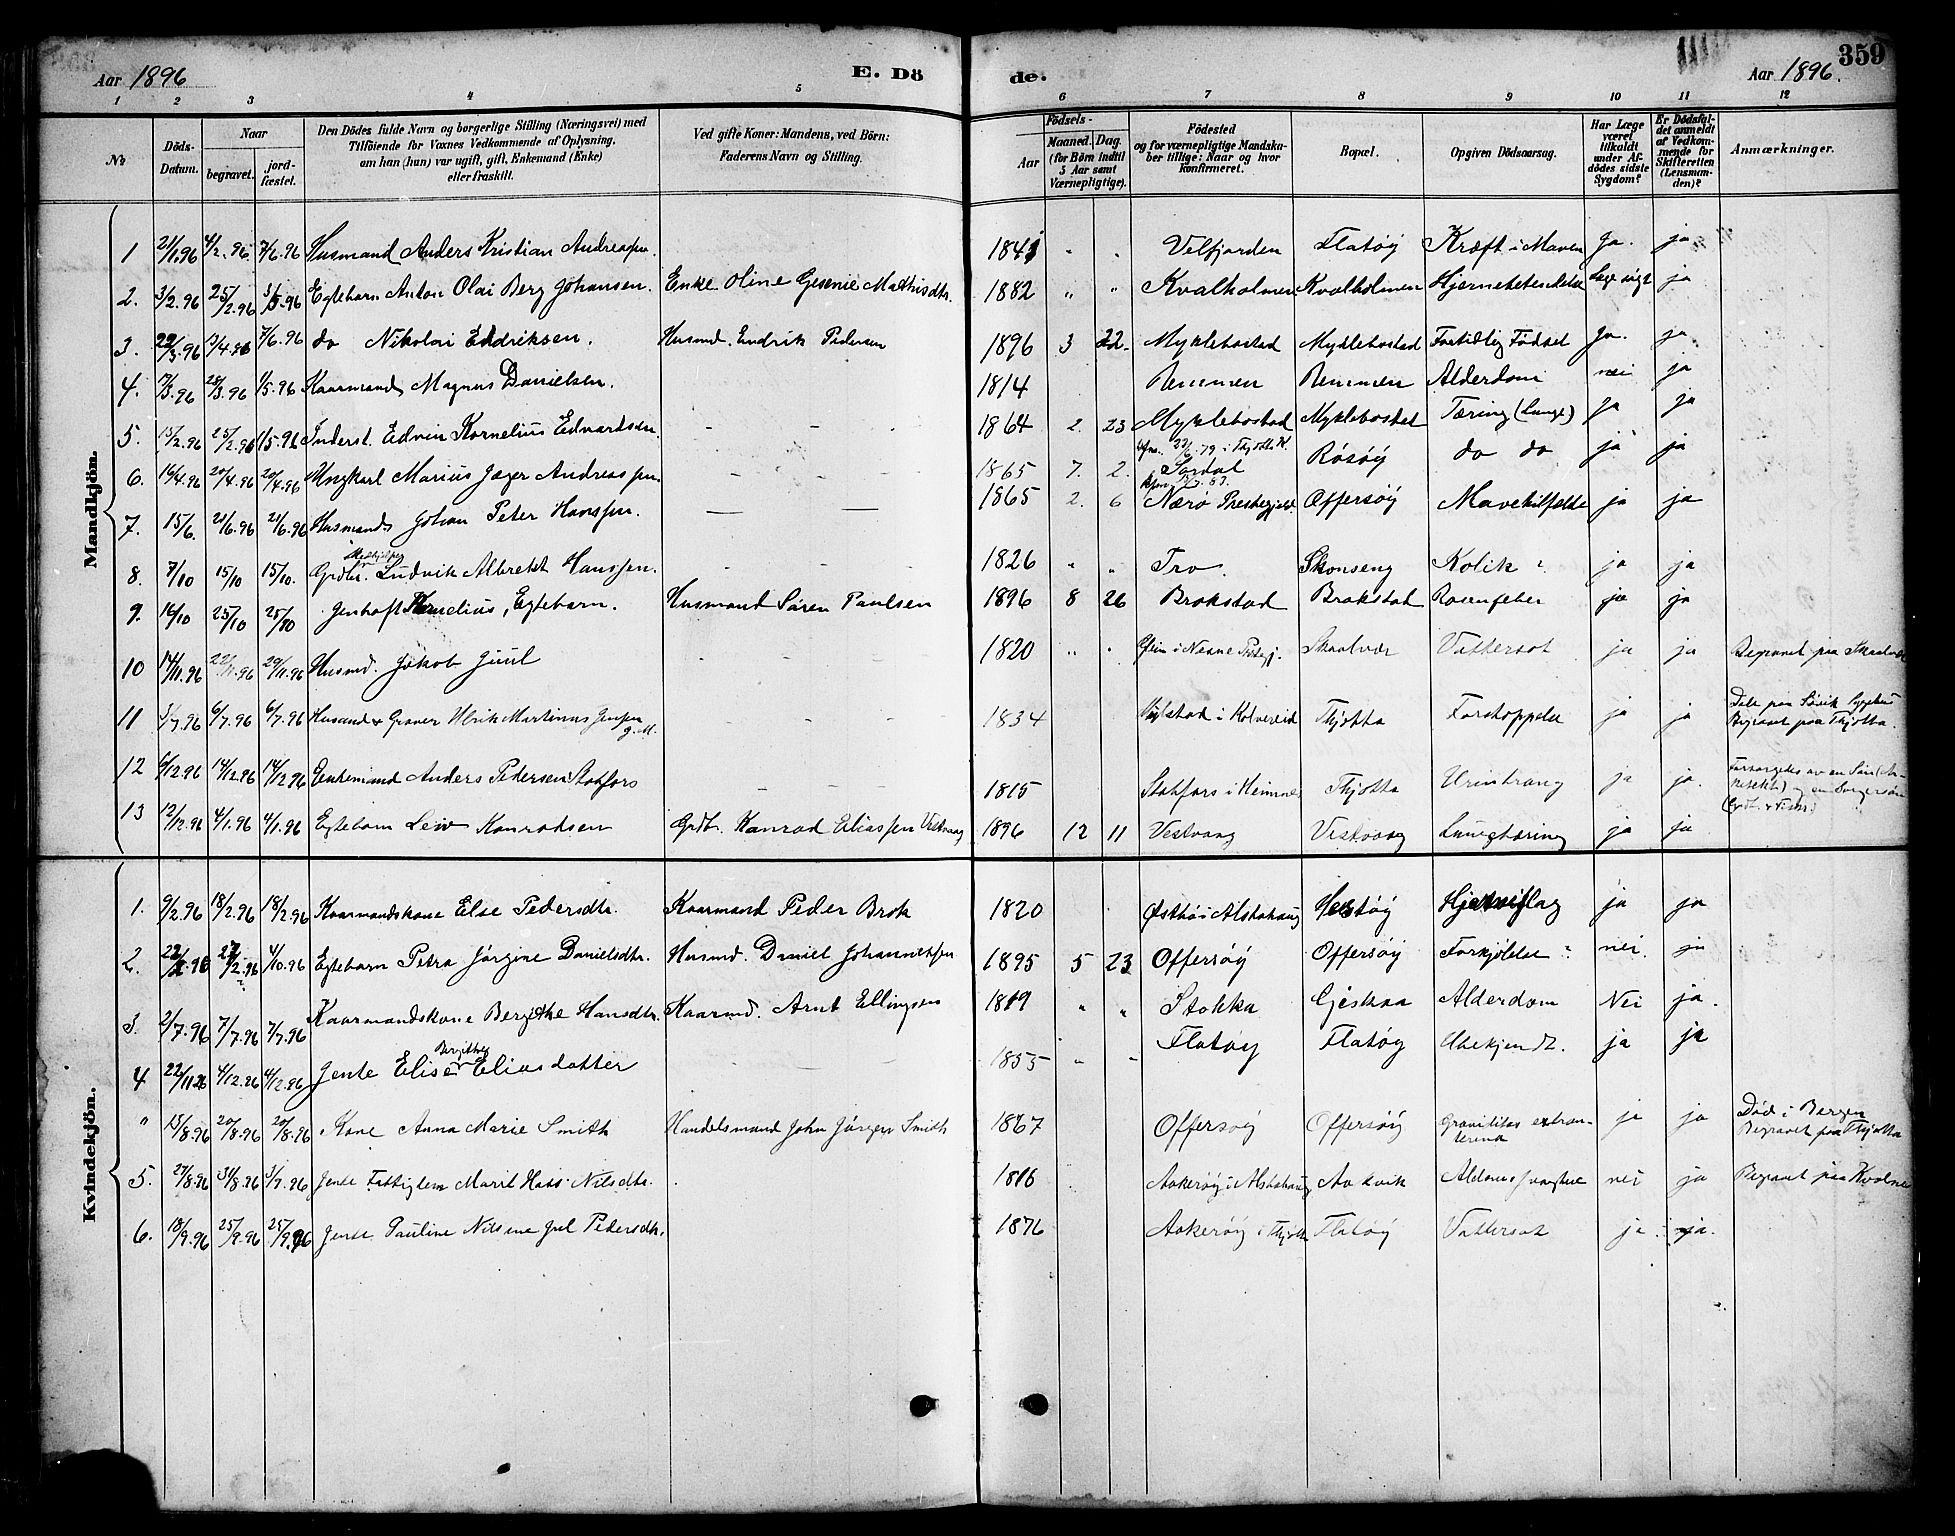 Aar 1896
E. Dö
de.
Aar 1896.
359
1 2 3 4 5 6 7 8 9 10 11 12
No
Döds-Datum.
Naar
begravet.
jord-fæstet.
Den Dödes fulde Navn og borgerlige Stilling (Næringsvei) med
Tilföiende for Voxnes Vedkommende af Oplysning,
om han (hun) var ugift, gift, Enkemand (Enke)
eller fraskilt.
Ved gifte Koner: Mandens, ved Börn:
Faderens Navn og Stilling.
Födsels-
Aar
Maaned. Dag.
(for Börn indtil
5 Aar samt
Værnepligtige).
Födested
og for værnepligtige Mandska-
ber tillige: Naar og hvor
konfirmeret.
Bopæl.
Opgiven Dödsaarsag.
Har Læge
været
tilkaldt
under Af-
dödes sidste
Sygdom?
Er Dödsfal-
det anmeldt
af Vedkom-
mende for
Skifteretten
(Lensman-
den)?
Anmærkninger.
Mandkjön.
1 21/1.96 4/2.96 7/6.96 Husmand Anders Kristian Andreassen. 1841 " " Velfjorden Flatöy Kræft i Maven Ja. ja
2. 3/2.96 25/2.96 3/5.96 Egtebarn Anton Olai Berg Johansen. Enke Oline Gesenie Mathisdtr. 1882 " " Kvalholmen Kvalholmen Hjernebetendelse ja
3. 22/3.96 13/4.96 7/6.96 do Nikolai Endriksen. Husmd. Endrik Pedersen 1896 3 22. Myklebostad Myklebostad Fortidlig Födsel Ja. ja
4. 17/3.96 28/3.96 1/5.96 Kaarmand Magnus Danielsen. 1814 Remmen Remmen Alderdom nei ja
5. 15/2.96 25/2.96 1/5.96 Inderst. Edvin Kornelius Edvardsen. - - - 1864 2. 23 Myklebostad Myklebostad Tæring (Lunge) ja ja
6. 16/4.96 20/4.96 20/4.96 Ungkarl Marius Jæger Andreassen. 1865 7. 2. Röröy do do ja ja
7. 15/6. 21/6.96 21/6.96 Husmand Johan Peter Hanssen. — — 1865 2. 6 Nærö Prestegjeld. Offersöy ja ja
8. 7/10 15/10 15/10. Grdbr. Ludvik Albrekt Hanssen. - - 1826 " " Tro. Skonseng Kolik ? ja ja
9. 16/10 25/10 25/10 Jenhoft Kornelius, Egtebarn. Husmand Sören Paulsen 1896 8 26 Brokstad Brokstad Rosenfeber ja ja
10 14/11.96 22/11.96 29/11.96 Husmd. Jakob Juul - - 1820 " " i Nesne Prstgj. Skaalvær Vattersot ja ja Begravet paa Skaalvær
11 3/7.96 6/7.96 6/7.96 Husmand & Graver Ulrik Martinus Jensen g.M. - - 1834 i Kolvereid Thjotta Forstoppelse ja ja Begravet paa Thjotta.
12 6/12.96 14/12.96 14/12.96 Enkemand Anders Pedersen Stokfors - - 1815 Stokfors i Hemnes Thjotta Urintrang ja ja.
13 12/12.96 4/1.96 4/1.96 Egtebarn Leiv Konradsen Grdbr. Konrad Eliassen Vestvaag 1896 12 11 Vestvaag Vestvaag Lungetæring ja ja
Kvindekjön.
1. 9/2.96 18/2.96 18/2.96 Kaarmandskone Else Pedersdtr. Kaarmand Peder Brok 1820 i Alstahaug Hestöy Hjerteslag ja ja
2. 22/2.96 27/2.96 4/10.96 Egtebarn Petra Jörgine Danielsdtr. Husmd. Daniel Johannessen 1895 5 23 Offersöy Offersöy Forkjölelse ? nei. ja
3. 2/7.96 7/7.96 7/7.96 Kaarmandskone Bergitte Hansdtr. Kaarmd. Arnt Ellingsen 1819 " " Stokka Alderdom Nei ja.
4 22/11.96 4/12.96 4/12.96 Jente Elise Bergitha Eliasdatter - - 1855 " " Flatöy Flatöy Ubekjendt. ja ja
" 13/8.96 20/8.96 20/8.96 Kone Anna Marie Smith Handelsmand John Jörgen Smith 1867 Offersöy Offersöy Graviditas extrau-terina ja ja Död i Bergen Begravet paa Thjotta
5. 27/8.96 31/8.96 3/9.96 Jente Fattiglem Marit Hass Nilsdtr. 1816 Aakeröy i Alstahaug Aakvik nei ja Begravet paa
6. 18/9.96 25/9.96 25/9.96 Jente Pauline Nilsine Juel Pedersdtr. 1876 Aakeröy i Thjotta Flatöy Vattersot ja. ja.